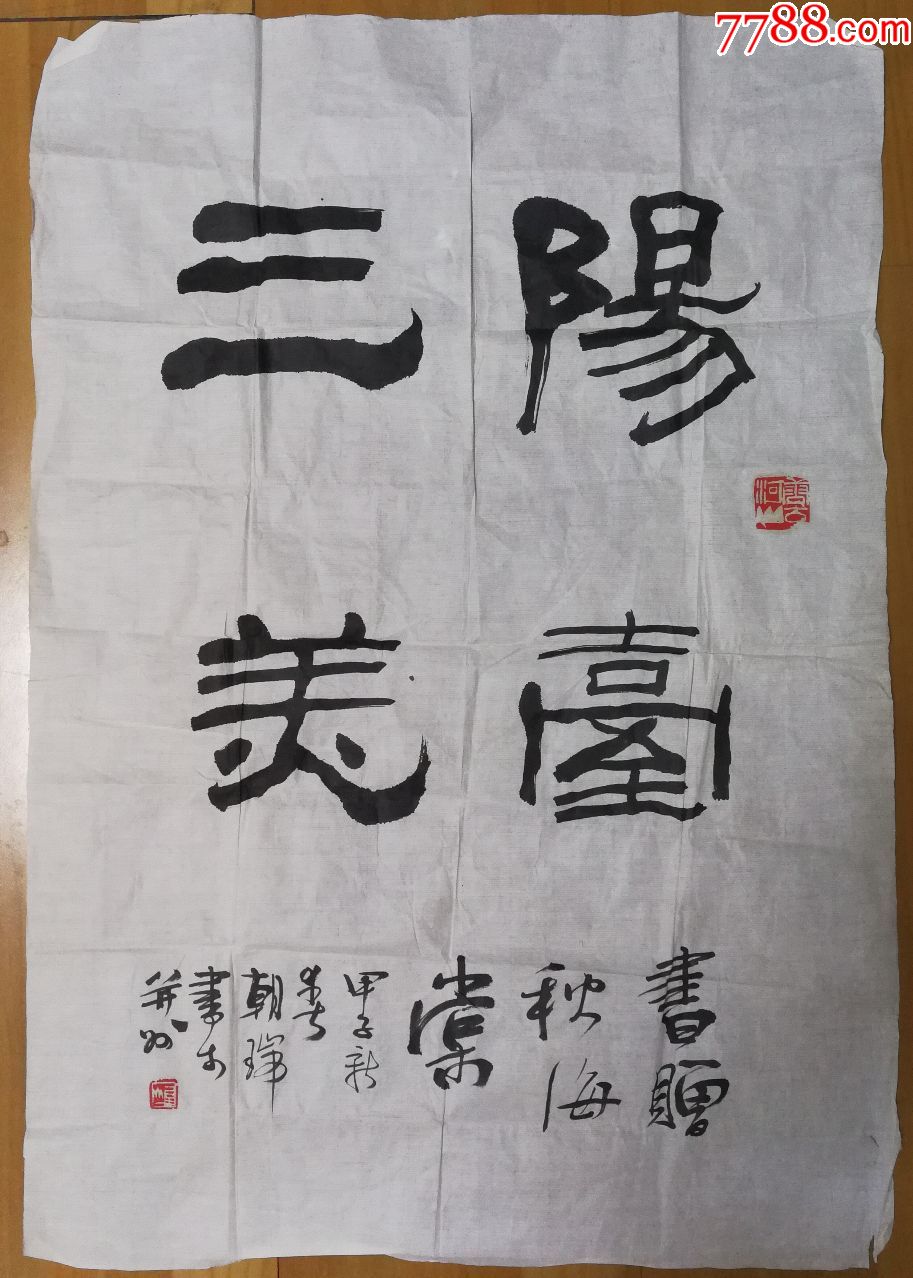 7788.com
陽臺
三美
書贈
秋海
棠
甲子新
春
朝瑞
書於
并州